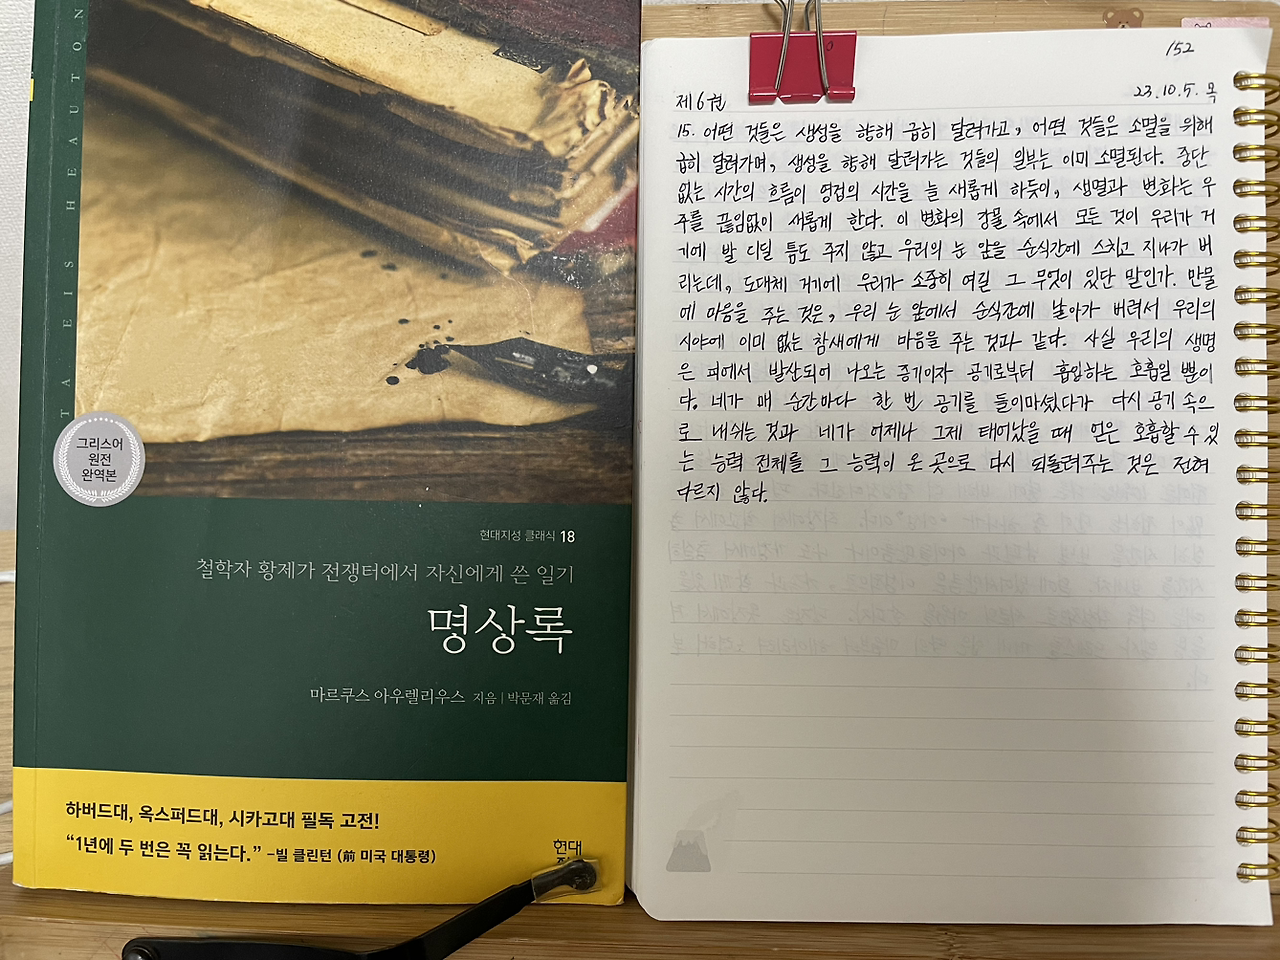 TA EIS HEAUTON
그리스어
원전
완역본
현대지성 클래식 18
철학자 황제가 전쟁터에서 자신에게 쓴 일기
명상록
마르쿠스 아우렐리우스 지음 | 박문재 옮김
하버드대, 옥스퍼드대, 시카고대 필독 고전!
“1년에 두 번은 꼭 읽는다.” –빌 클린턴 (前 미국 대통령)
현대
152
제6권
23.10.5. 목
15. 어떤 것들은 생성을 향해 급히 달려가고, 어떤 것들은 소멸을 위해
급히 달려가며, 생성을 향해 달려가는 것들의 일부는 이미 소멸된다. 중단
없는 시간의 흐름이 영겁의 시간을 늘 새롭게 하듯이, 생멸과 변화는 우
주를 끊임없이 새롭게 한다. 이 변화의 강물 속에서 모든 것이 우리가 거
기에 발 디딜 틈도 주지 않고 우리의 눈 앞을 순식간에 스치고 지나가 버
리는데, 도대체 거기에 우리가 소중히 여길 그 무엇이 있단 말인가. 만물
에 마음을 주는 것은, 우리 눈 앞에서 순식간에 날아가 버려서 우리의
시야에 이미 없는 참새에게 마음을 주는 것과 같다. 사실 우리의 생명
은 피에서 발산되어 나오는 증기이자 공기로부터 흡입하는 호흡일 뿐이
다. 네가 매 순간마다 한 번 공기를 들이마셨다가 다시 공기 속으
로 내쉬는 것과 네가 어제나 그제 태어났을 때 얻은 호흡할 수 있
는 능력 전체를 그 능력이 온 곳으로 다시 되돌려주는 것은 전혀
다르지 않다.